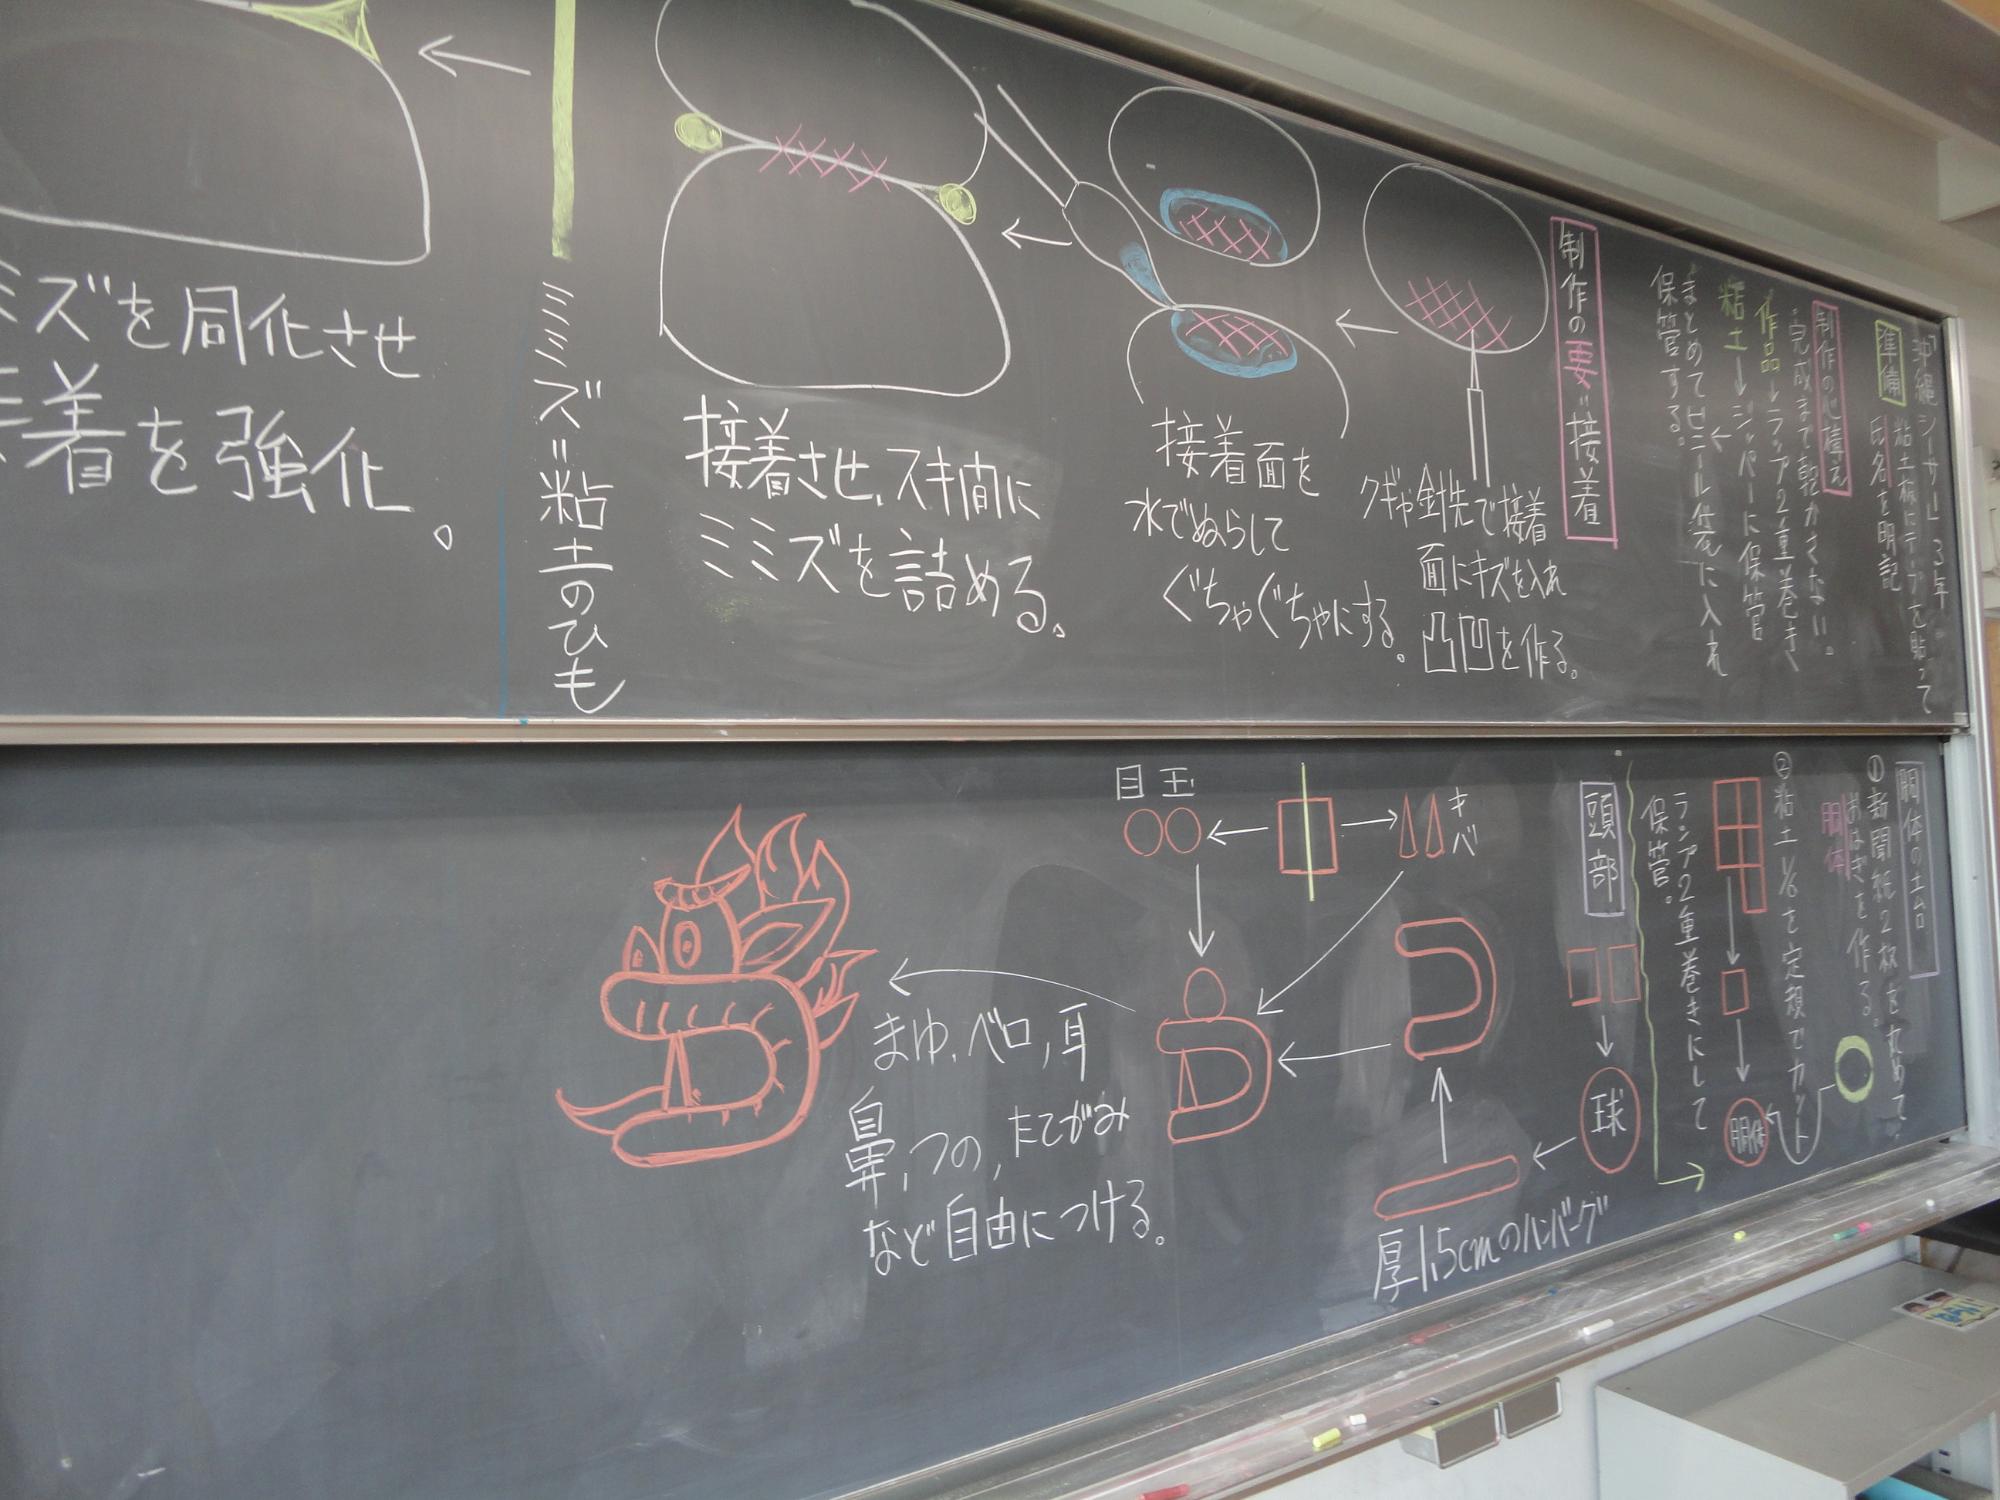 「沖縄シーサー」3年
準備 粘土板にテープを貼って
氏名を明記
制作の心構え
・完成まで乾かさない!!
作品→ラップ2重巻き
粘土→ジッパーに保管
まとめてビニール袋に入れ
保管する。
制作の要=接着
クギや針先で接着
面にキズを入れ
凸凹を作る。
接着面を
水でぬらして
ぐちゃぐちゃにする。
接着させ、スキ間に
ミミズを詰める。
ミミズ=粘土のひも
ミズを同化させ
着を強化。
胴体の土台
①新聞紙2枚を丸めて、
おはぎを作る。
胴体
②粘土1/6を定規でカット
胴体
ラップ2重巻きにして
保管。
頭部
球
厚1.5cmのハンバーグ
キバ
目玉
まゆ、ベロ、耳
鼻、つの、たてがみ
など自由につける。